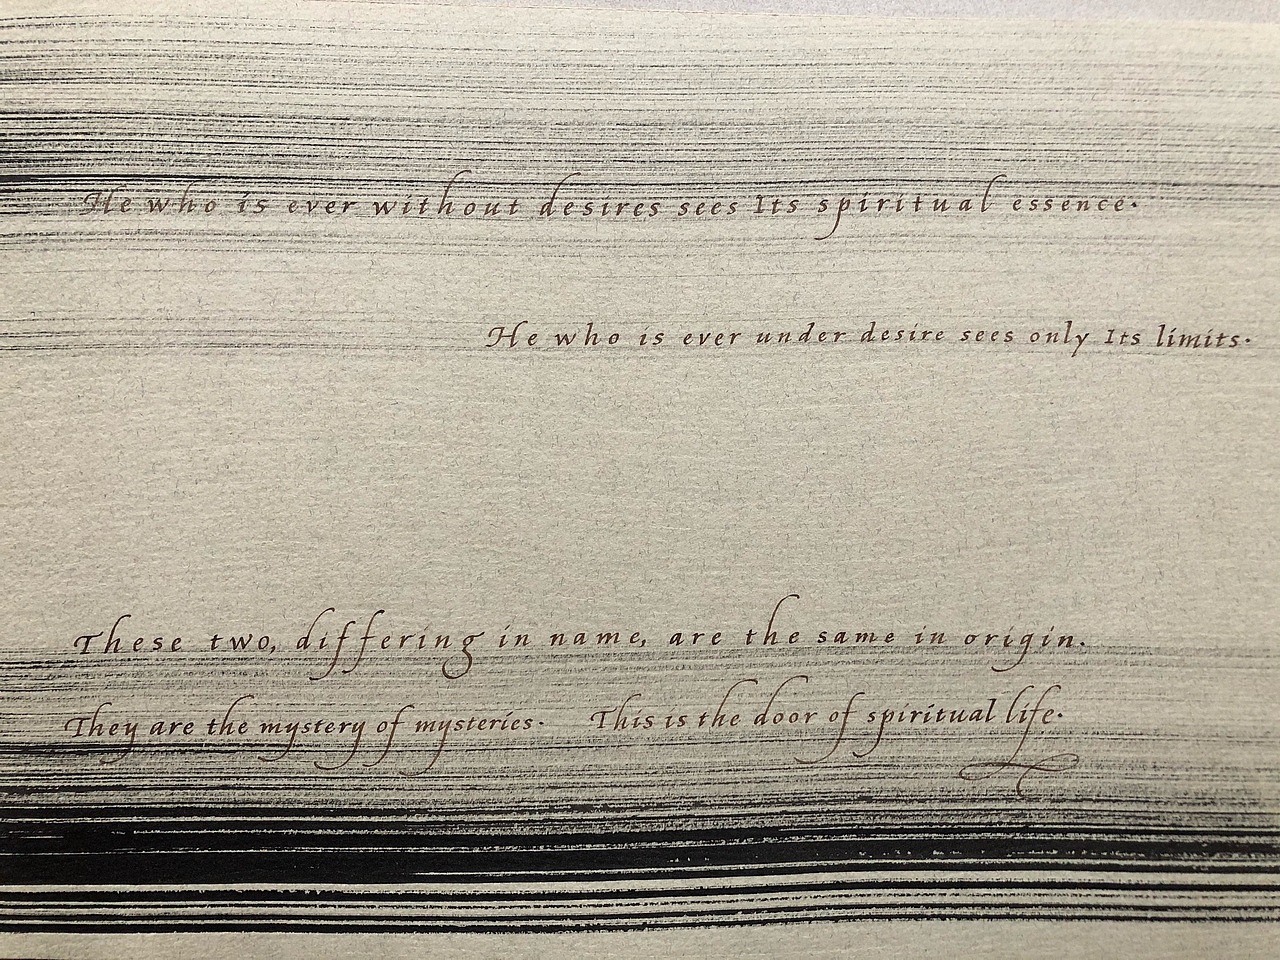 He who is ever without desires sees Its spiritual essence.
He who is ever under desire sees only Its limits.
These two, differing in name, are the same in origin.
They are the mystery of mysteries. This is the door of spiritual life.